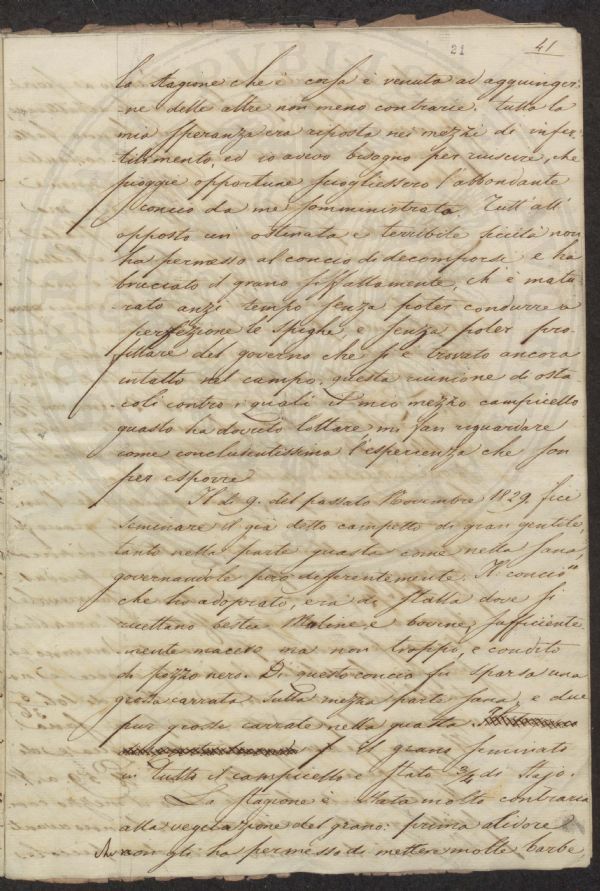 21
41
la stagione che è corsa è venuta ad aggiunger
ne delle altre non meno contrarie. Tutta la
mia speranza era riposta nei mezzi di infer
tilimento, ed io avevo bisogno per riuscire, che
pioggie opportune sciogliessero l'abbondante
concio da me somministrato. Tutt'all'
opposto un' ostinata e terribile siccità non
ha permesso al concio di decomporse e ha
bruciato il grano siffattamente, ch'è matu
rato anzi tempo senza poter condurre a
perfezione le spighe, e senza poter pro
fittare del governo che si è trovato ancora
intatto nel campo. questa riunione di osta
coli contro i quali il mio mezzo campicello
guasto ha dovuto lottare mi fan riguardare
come concludentissima l'esperienza che son
per esporre
Il dì 9. del passato Novembre 1829. feci
seminare il già detto campetto di gran gentile,
tanto nella parte guasta come nella sana,
governandole però differentemente. Il concio
che ho adoprato, era di stalla dove si
ricettano bestie Muline, e bovine, sufficiente
mente macero ma non troppo, e condito
di pozzo nero. Di questo concio fu sparsa una
grossa carrata sulla mezza parte sana, e due
pur grosse carrate nella guasta.
Il grano seminato
in tutto il campicello è stato 3/4 di stajo.
La stagione è stata molto contraria
alla vegetazione del grano: prima
non gli ha permesso di metter molte barbe